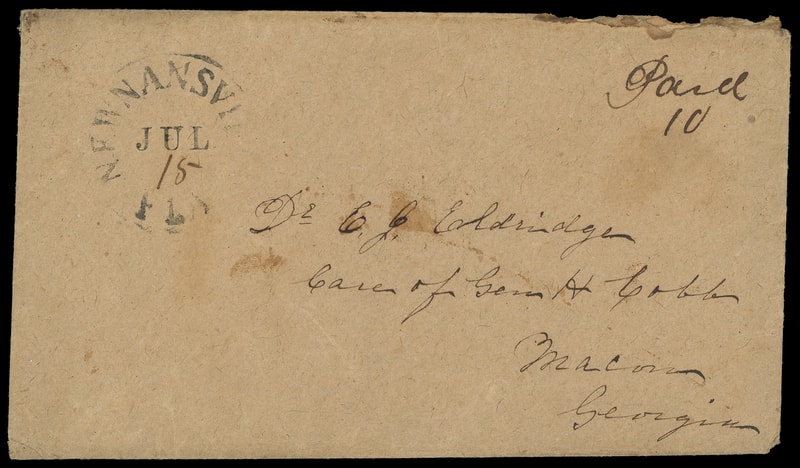 NEWNANSVI
JUL
15
FLA
Paid
10
Dr E. J. Eldridge
Care of Gen H Cobb
Macon
Georgia